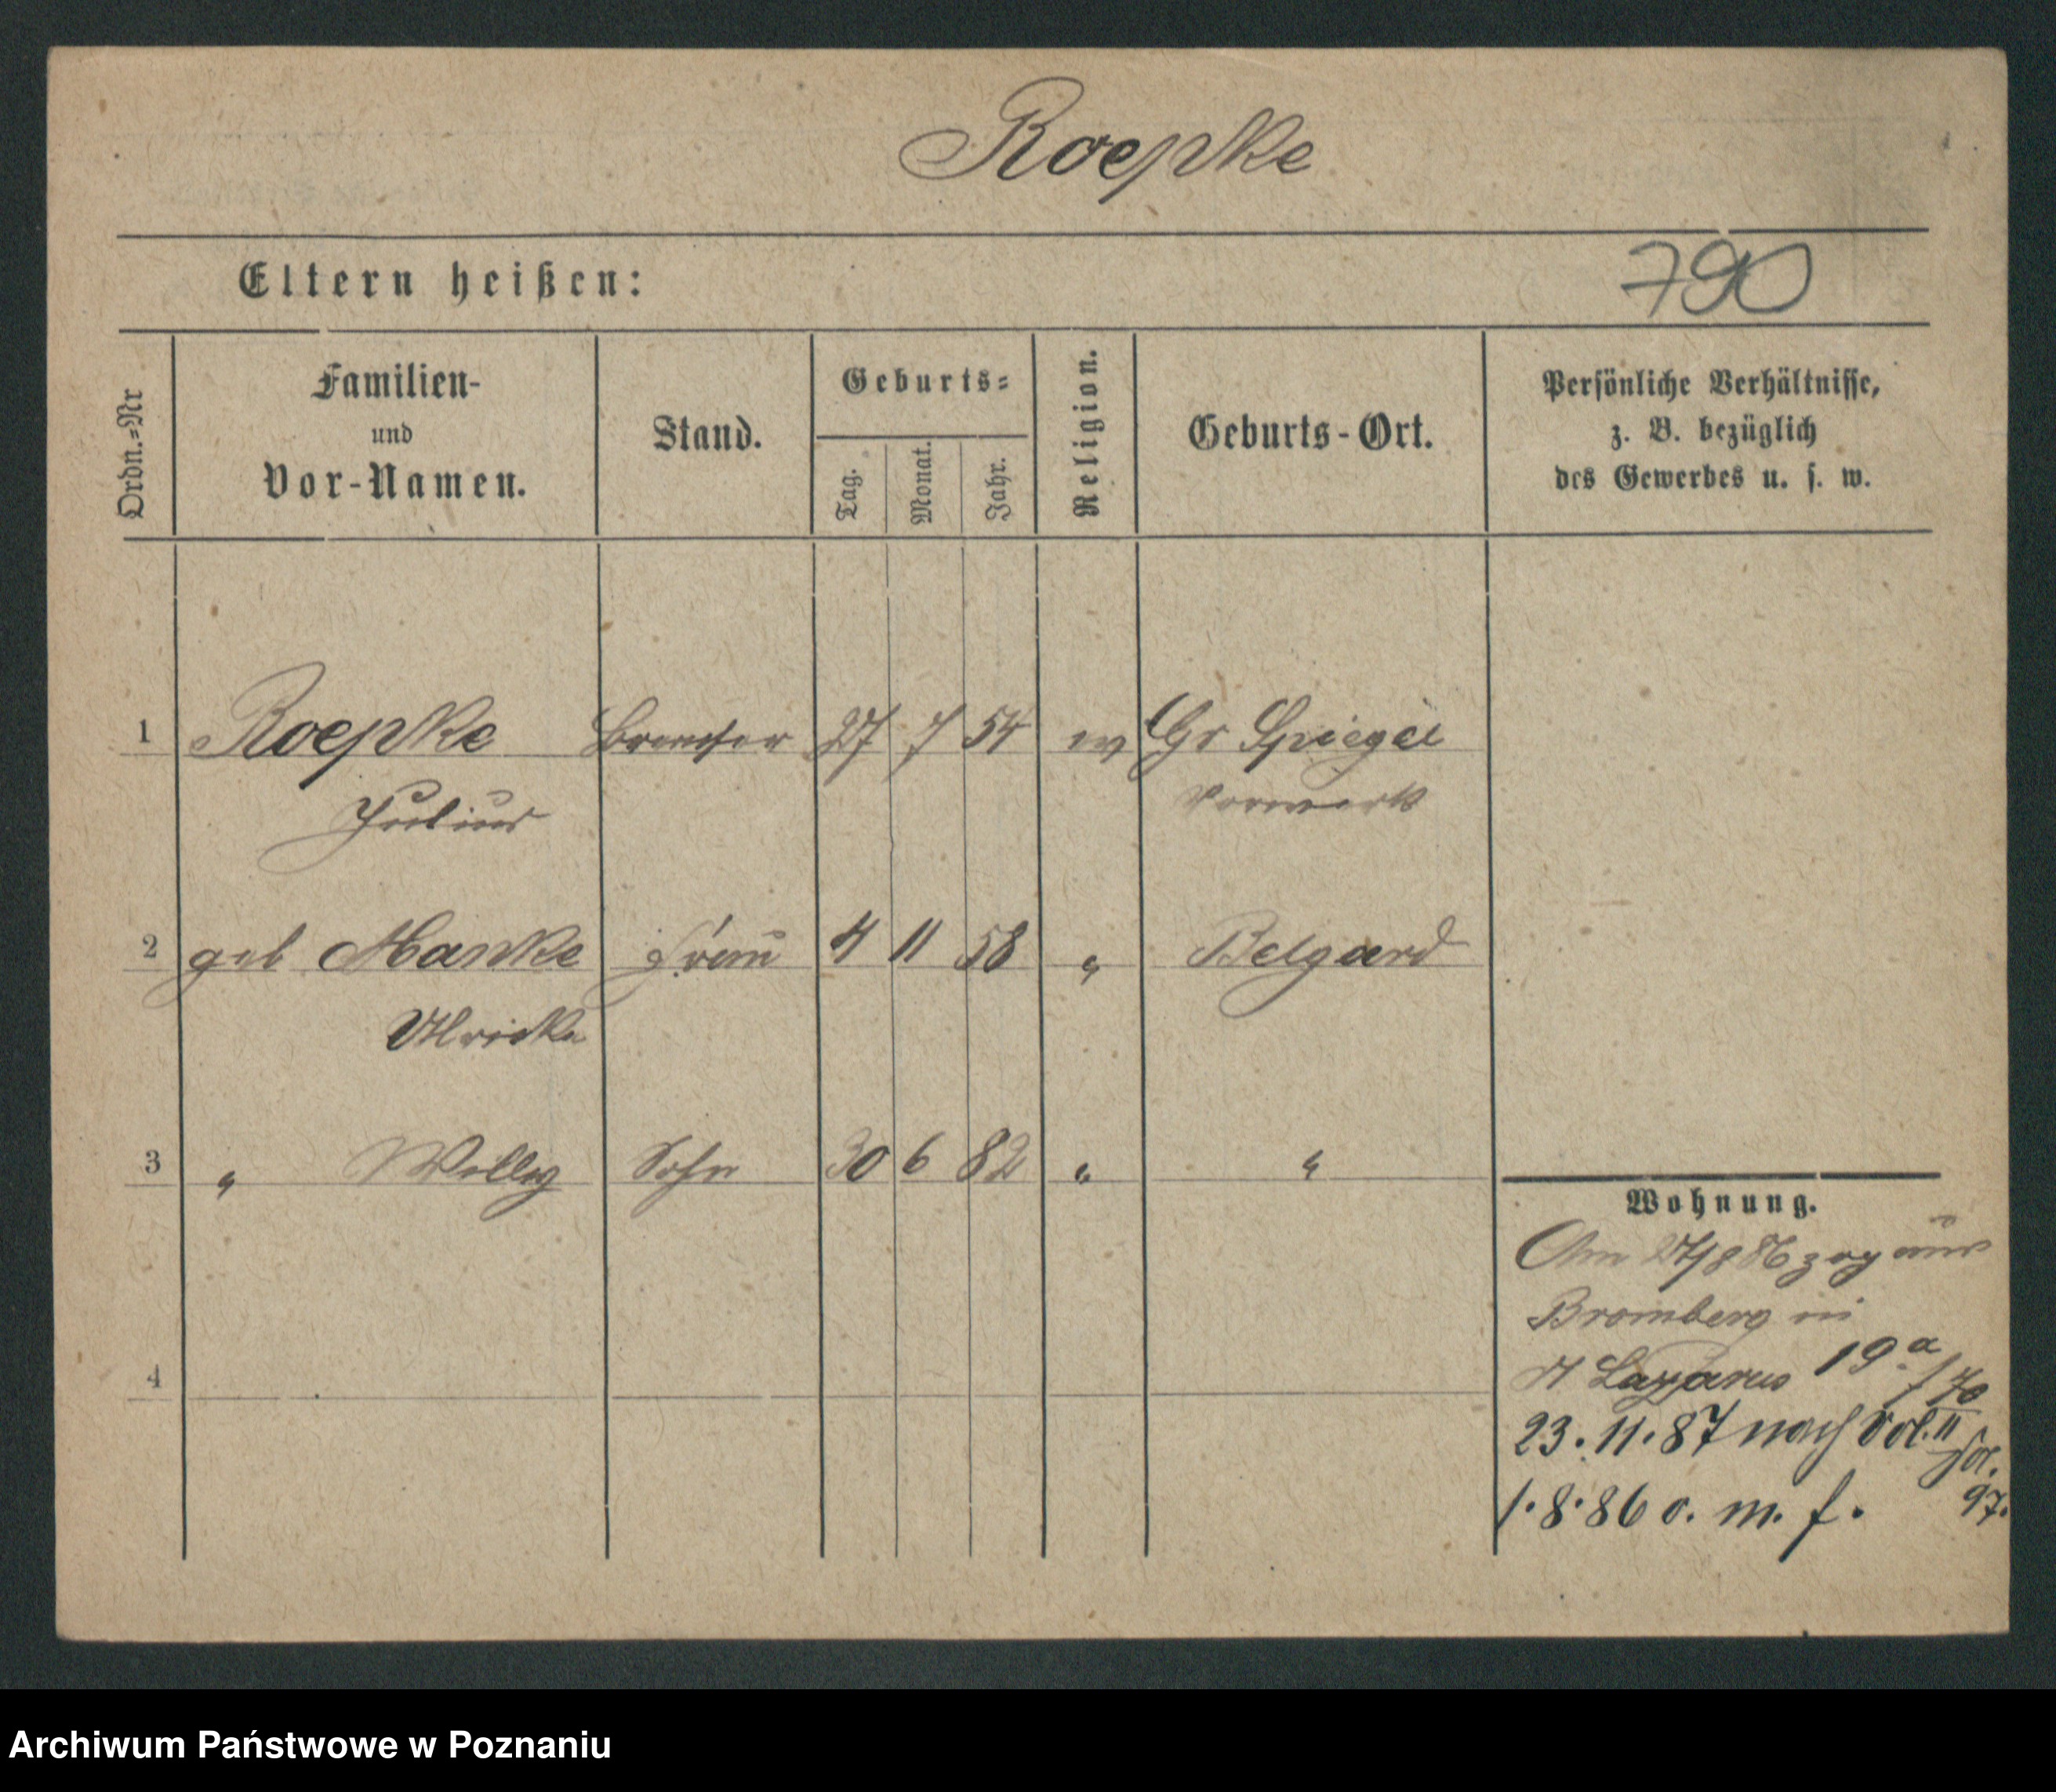 Roepke
Eltern heißen:
790
Ordn.=Nr
Familien-
und
Vor-Namen.
Stand.
Geburts=
Tag.
Monat.
Jahr.
Religion.
Geburts-Ort.
Persönliche Verhältnisse,
z. B. bezüglich
des Gewerbes u. s. w.
1 Roepke Bremser 27 7 54 ev Gr Spiegel
Julius Vorwerk
2 geb Manke Frau 4 11 58 " Belgard
Ulricke
3 " Willy Sohn 30 6 82 " "
Wohnung.
Am 27/8 86 zog aus
Bromberg in
St Lazarus 19a/70
23.11.87 nach Vol. II
fol.
1.8.86 o. m. f. 97.
4
Archiwum Państwowe w Poznaniu